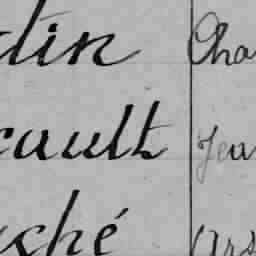 tin Cha
cault Jea
ché Ars